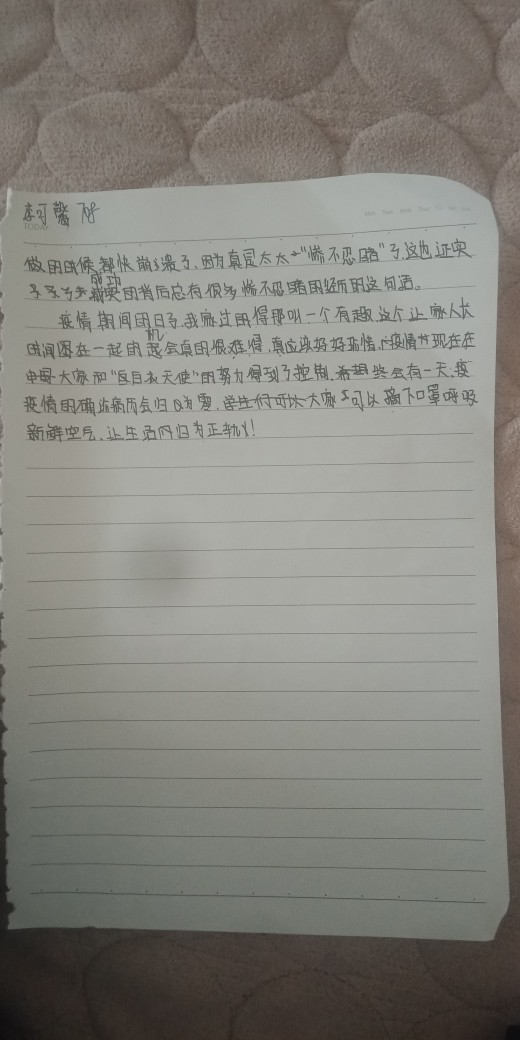 李可馨
TODAY
做的时候,都快崩溃了,因为真是太太太"惨不忍睹"了,这也证实
了成功的背后总有很多惨不忍睹的经历的这句话。
疫情期间的日子,我家过的得那叫一个有趣,这个让家人长
时间困在一起的机会真的很难得,真应该好好珍惜,疫情现在在
大家和"白衣天使"的努力得到了控制,希望终会有一天,疫
疫情的确诊病历会归为零,大家可以摘下口罩呼吸
新鲜空气,让生活回归为正轨!